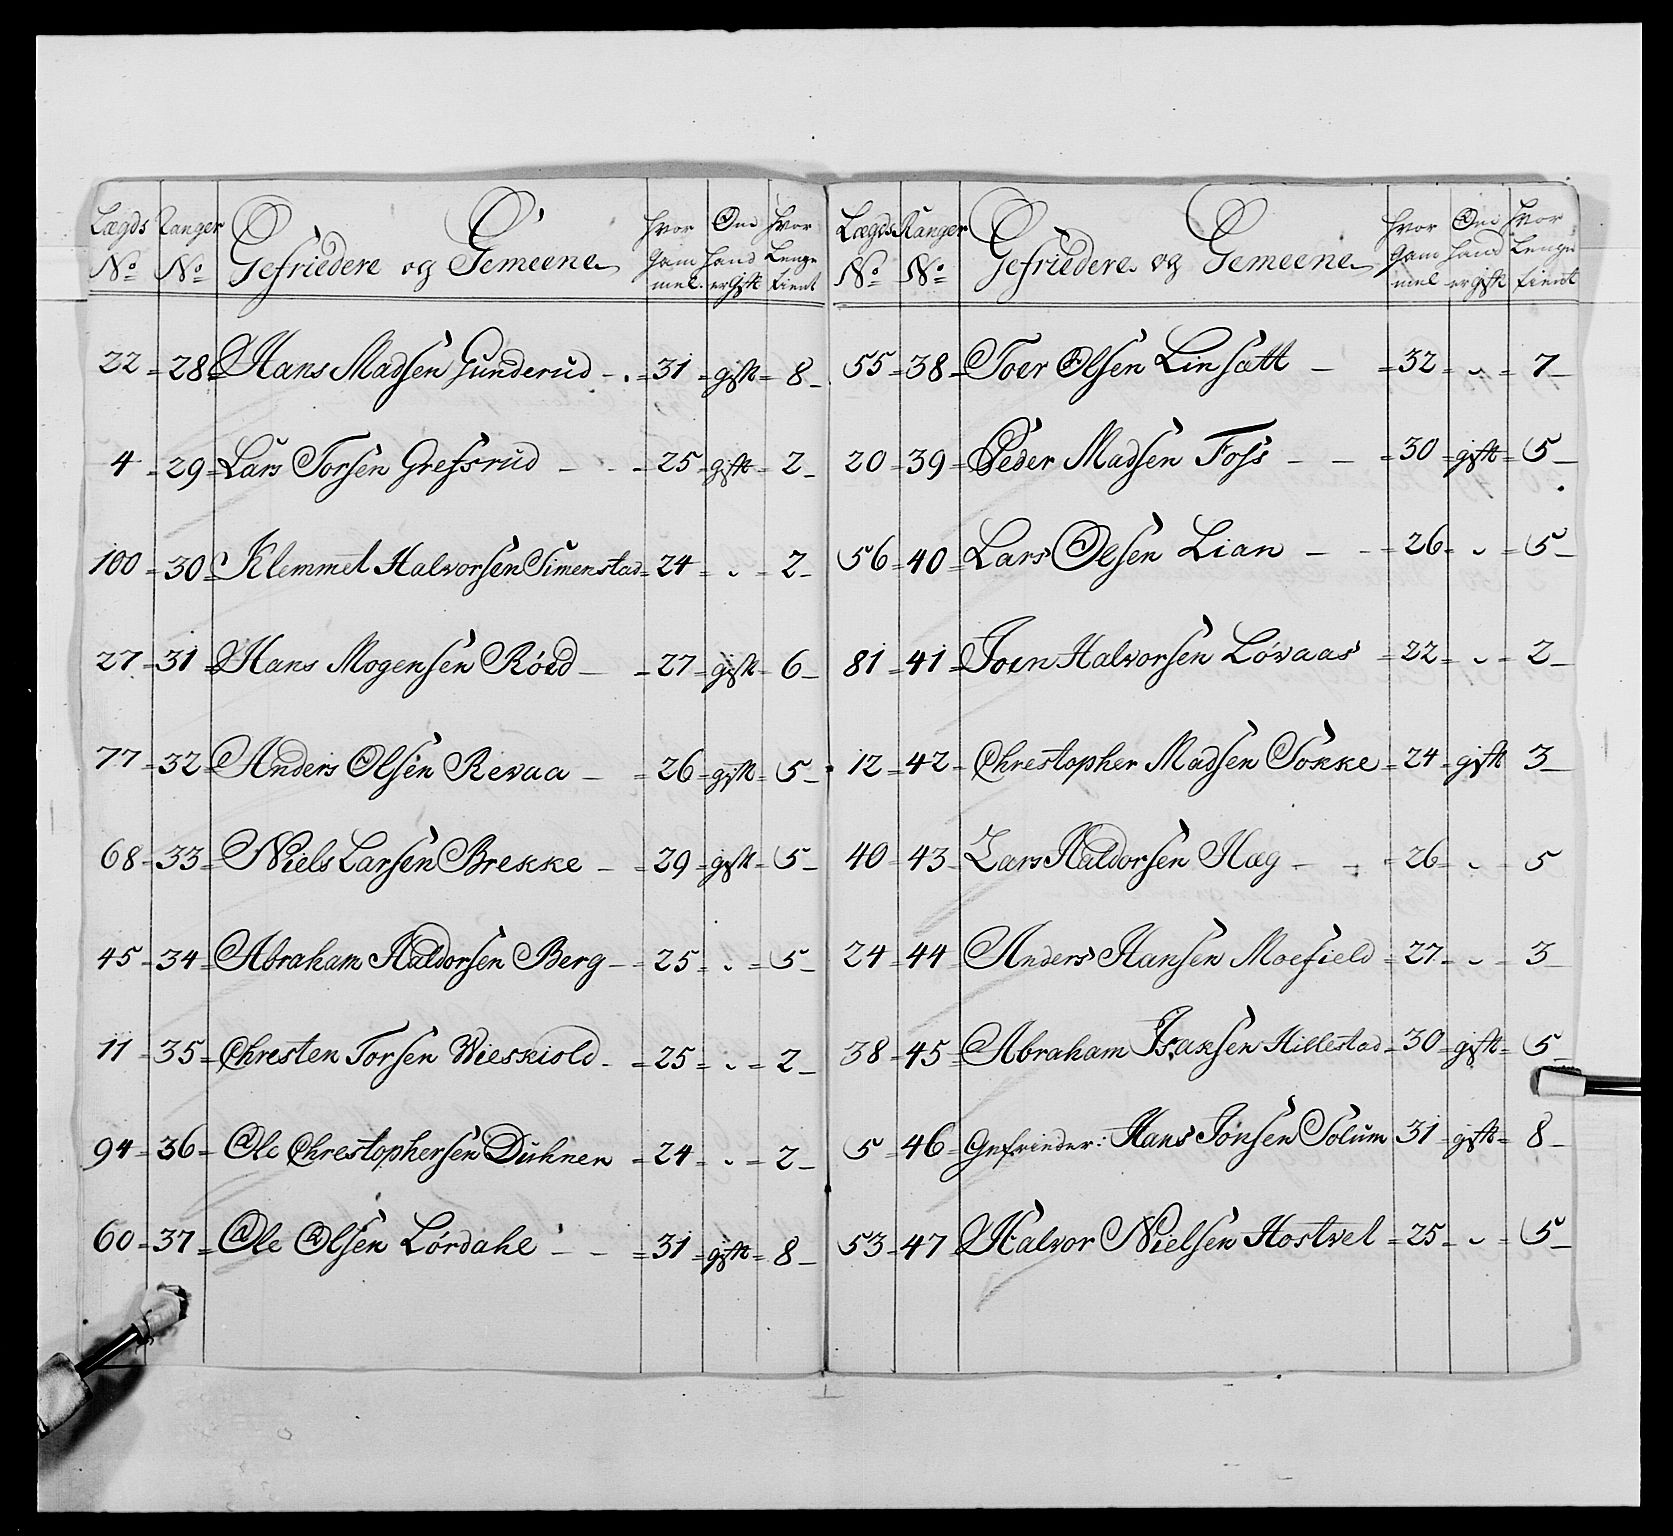 Lægds Ranger Hvor Om Hvor
Gam hand Lenge
No No Gefriedere og Gemeene mel. er gift tient
22 - 28 Hans Madsen Gunderud - 31 - gift - 8
4 - 29 - Lars Torsen Grefsrud - 25 - gift - 2
100 - 30 Klemmet Halvorsen Simenstad - 24 - 2
27 - 31 Hans Mogensen Röed - 27 - gift - 6
77 - 32 Anders Olsen Revaa - 26 - gift - 5
68 - 33 Niels Larsen Brekke - 29 - gift - 5
45 - 34 Abraham Haldorsen Berg - 25 - 5
11 - 35 - Chresten Torsen Wieskiold - 25 - 2
94 - 36 - Ole Chrestophersen Duhnen - 24 - 2
60 - 37 - Ole Olsen Lørdahl - 31 - gift - 8
Lægds Ranger Hvor Om Hvor
Gam hand Lenge
No No Gefriedere og Gemeene mel er gift tient
55 - 38 - Toer Olsen Linsætt - 32 - 7
20 - 39 - Peder Madsen Foss - 30 - gift - 5
56 - 40 - Lars Olsen Lian - 26 - 5
81 - 41 - Joen Halvorsen Løvaas - 22 - 2
12 - 42 - Chrestopher Madsen Sokke - 24 - gift 3
40 - 43 - Lars Haldorsen Hæg - 26 - 5
24 - 44 Anders Hansen Moefield - 27 - 3
38 - 45 - Abraham Isaksen Hillestad - 30 - gift - 5
5 - 46 - Gefrieder: Hans Jonsen Solum 31 - gift - 8
53 - 47 Halvor Nielsen Hostvet - 25 - 5